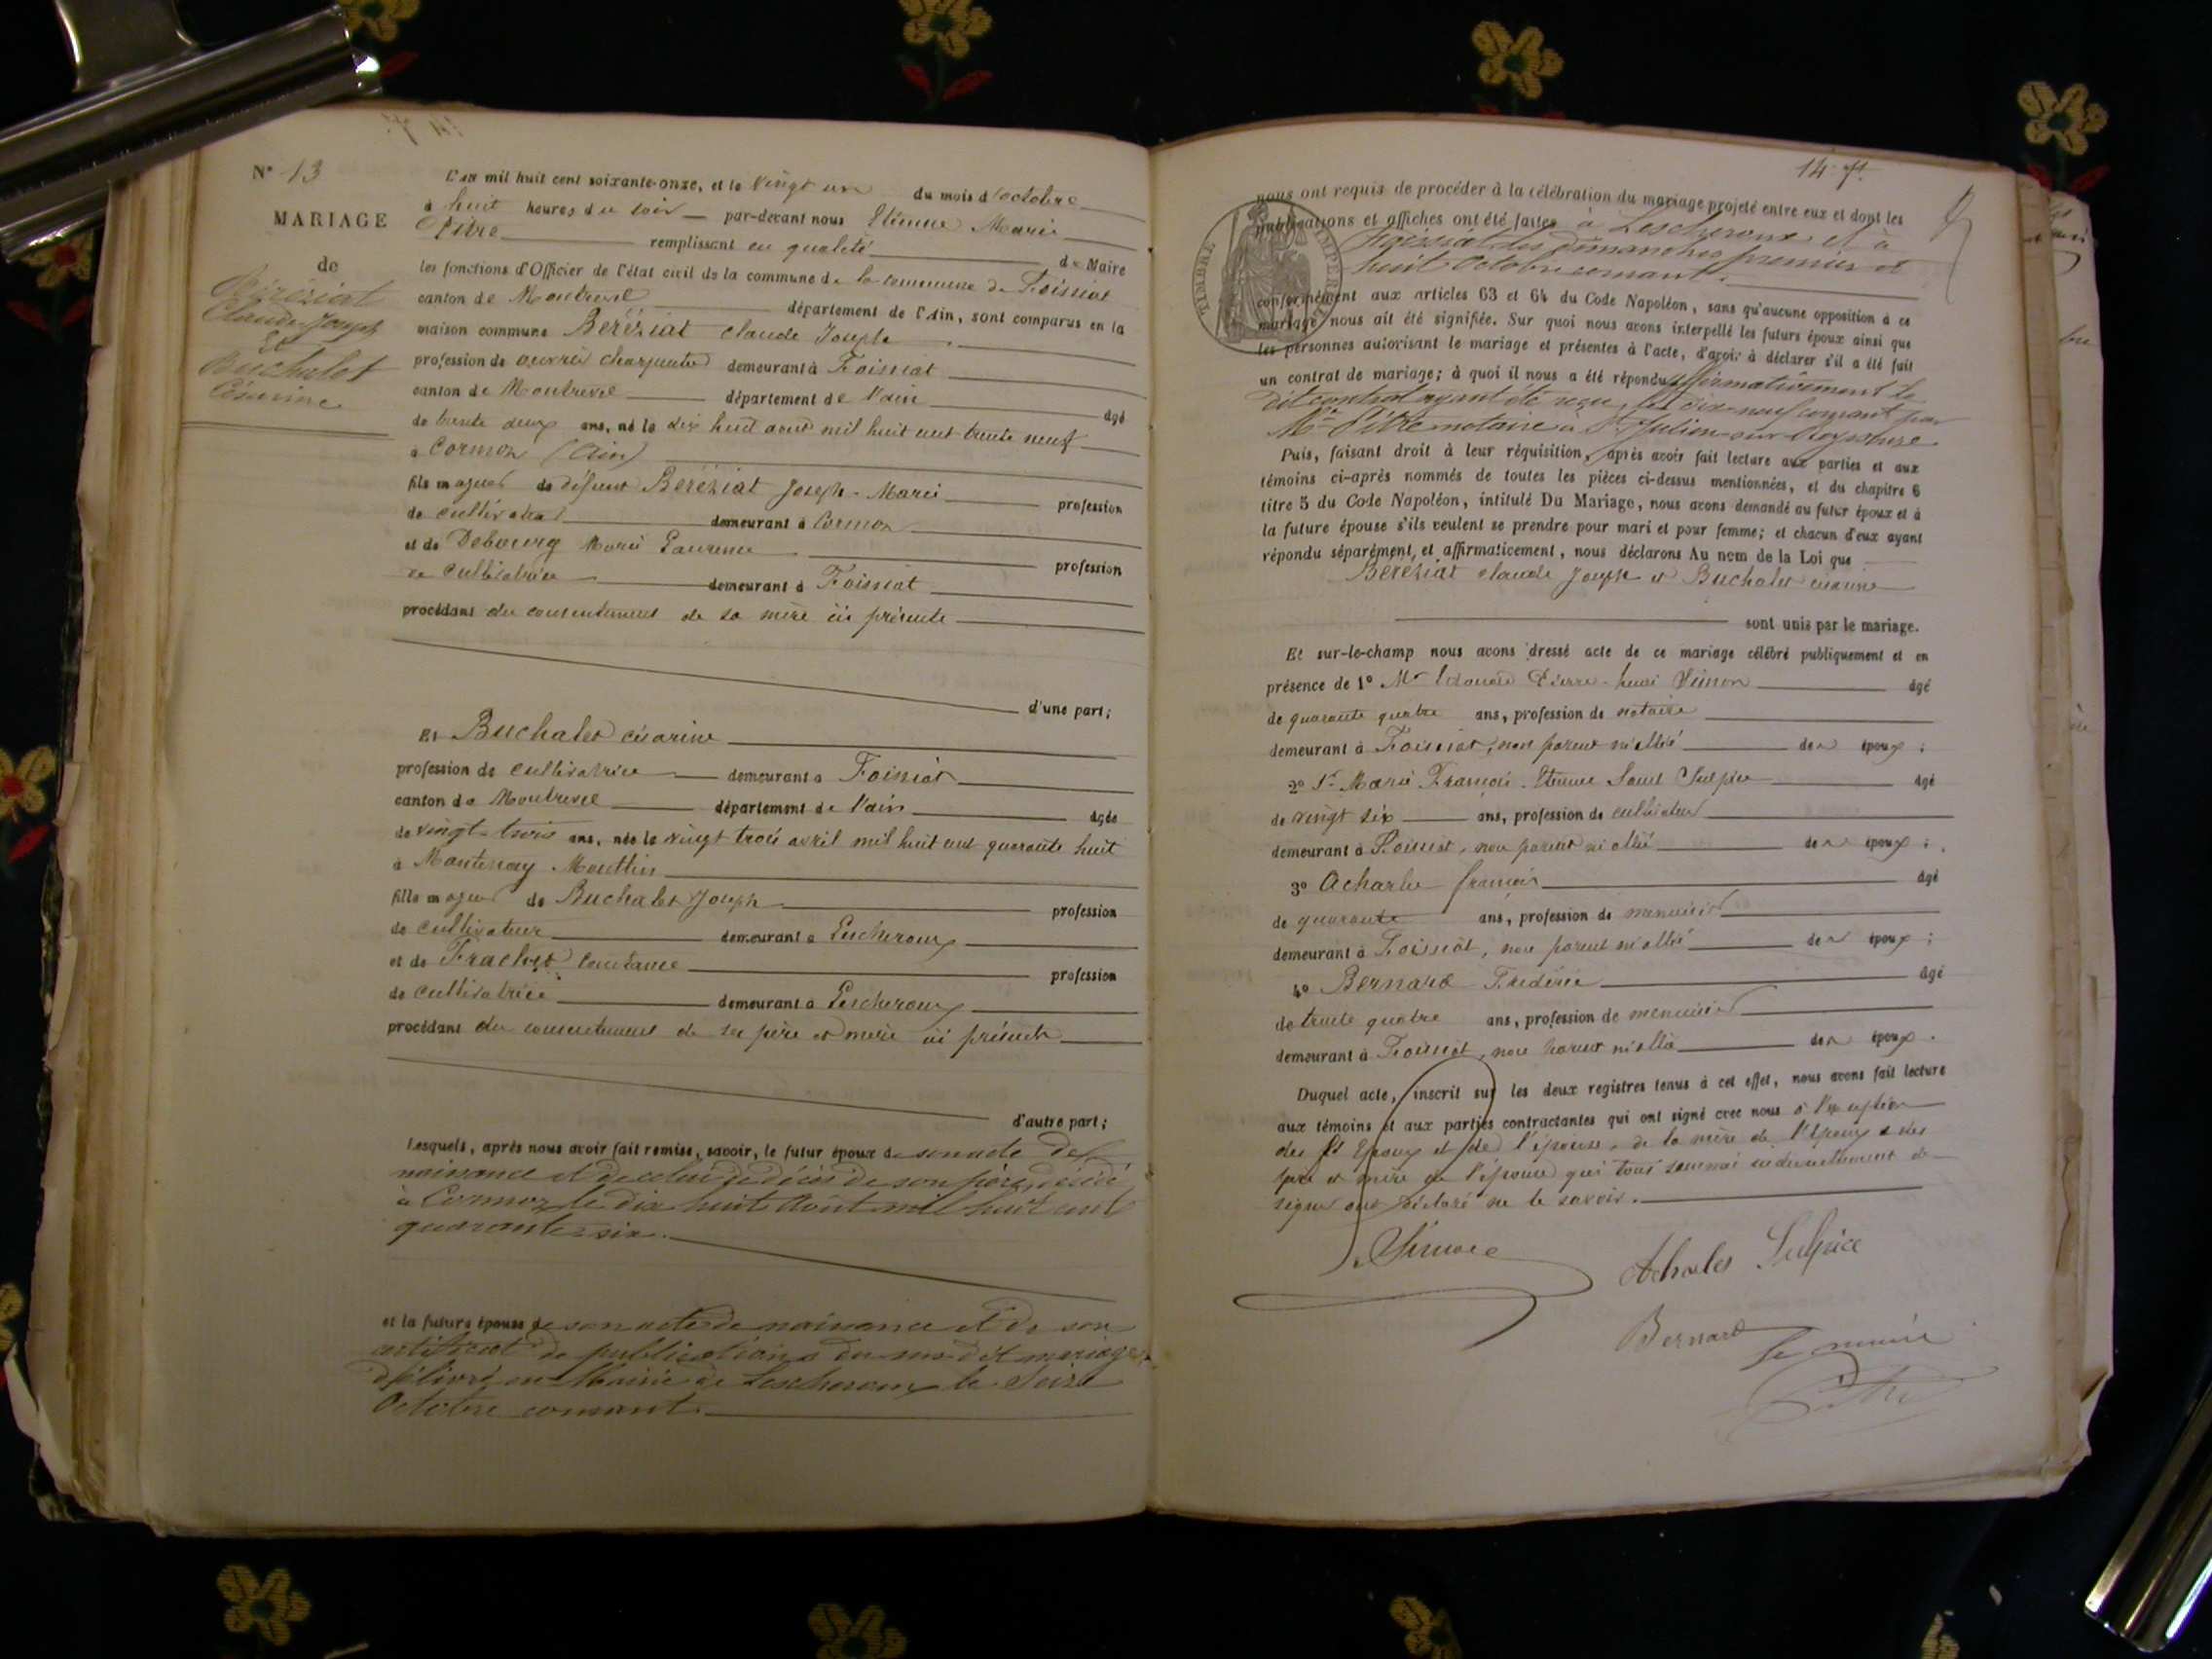 N° 13
MARIAGE
de
Béréziat
Claude Joseph
et
Buchalet
Césarine
L'an mil huit cent soixante-onze, et le vingt un du mois d'octobre
à huit heures du soir par-devant nous Etienne Marie
Pitre remplissant en qualité de Maire
les fonctions d'Officier de l'état civil de la commune de la commune de Foissiat
canton de Montrevel département de l'Ain, sont comparus en la
maison commune Beréziat Claude Joseph
profession de ouvrier charpentier demeurant à Foissiat
canton de Montrevel département de l'ain âgé
de trente deux ans, né le dix huit aout mil huit cent trente neuf
à Cormoz (Ain)
fils majeur de défunt Beréziat Joseph-Marie profession
de cultivateur demeurant à Cormoz
et de Debourg Marie Laurence profession
de cultivatrice demeurant à Foissiat
procédant du consentement de sa mère ici présente
d'une part;
Et Buchalet césarine
profession de cultivatrice demeurant à Foissiat
canton de Montrevel département de l'ain âgée
de vingt-trois ans, née le vingt trois avril mil huit cent quarante huit
à Mantenay Montlin
fille majeure de Buchalet Joseph profession
de cultivateur demeurant à Lescheroux
et de Frachet Constance profession
de cultivatrice demeurant à Lescheroux
procédant du consentement de ses père et mère ici présents
d'autre part;
Lesquels, après nous avoir fait remise, savoir, le futur époux de son acte de
naissance et de celui de décès de son père, décédé
à Cormoz le dix huit Août mil huit cent
quarante-six.
et la future épouse de son acte de naissance et de son
certificat de publications du susdit mariage
délivré en Mairie de Lescheroux le Seize
Octobre courant.
14-7.
nous ont requis de procéder à la célébration du mariage projeté entre eux et dont les
publications et affiches ont été faites à Lescheroux et à
Foissiat les dimanches premier et
huit Octobre courant.
TIMBRE IMPERIAL
conformément aux articles 63 et 64 du Code Napoléon, sans qu'aucune opposition à ce
mariage nous ait été signifiée. Sur quoi nous avons interpellé les futurs époux ainsi que
les personnes autorisant le mariage et présentes à l'acte, d'avoir à déclarer s'il a été fait
un contrat de mariage; à quoi il nous a été répondu affirmativement le
dit contrat ayant été reçu le dix-neuf courant par
Me Pitre notaire à St Julien-sur-Reyssouze
Puis, faisant droit à leur réquisition, après avoir fait lecture aux parties et aux
témoins ci-après nommés de toutes les pièces ci-dessus mentionnées, et du chapitre 6
titre 5 du Code Napoléon, intitulé Du Mariage, nous avons demandé au futur époux et à
la future épouse s'ils veulent se prendre pour mari et pour femme; et chacun d'eux ayant
répondu séparément et affirmativement, nous déclarons Au nom de la Loi que
Beréziat claude Joseph et Buchalet césarine
sont unis par le mariage.
Et sur-le-champ nous avons dressé acte de ce mariage célébré publiquement et en
présence de 1° Mr Edouard Pierre-henri âgé
de quarante quatre ans, profession de notaire
demeurant à Foissiat, non parent ni allié des époux;
2° Sr Marie François Etienne Saint Sulpice âgé
de vingt six ans, profession de cultivateur
demeurant à Foissiat, non parent ni allié des époux;
3° Acharles françois âgé
de quarante ans, profession de menuisier
demeurant à Foissiat, non parent ni allié des époux;
4° Bernard Frédéric âgé
de trente quatre ans, profession de menuisier
demeurant à Foissiat, non parent ni allié des époux.
Duquel acte, inscrit sur les deux registres tenus à cet effet, nous avons fait lecture
aux témoins et aux parties contractantes qui ont signé avec nous à l'exception
des Epoux et de l'épouse, de la mère de l'époux & des
père et mère de l'épouse qui tous sommés individuellement de
signer ont déclaré ne le savoir.
Acharles Sulpice
Bernard
le maire
Pitre